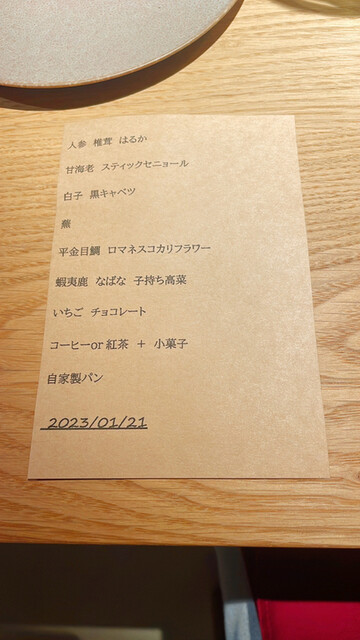 人参 椎茸 はるか
甘海老 スティックセニョール
白子 黒キャベツ
蕪
平金目鯛 ロマネスコカリフラワー
蝦夷鹿 なばな 子持ち高菜
いちご チョコレート
コーヒーor紅茶 ＋ 小菓子
自家製パン
2023/01/21